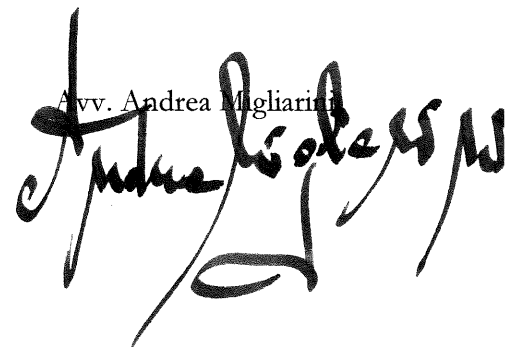 Avv. Andrea Migliarini
Andrea Migliarini